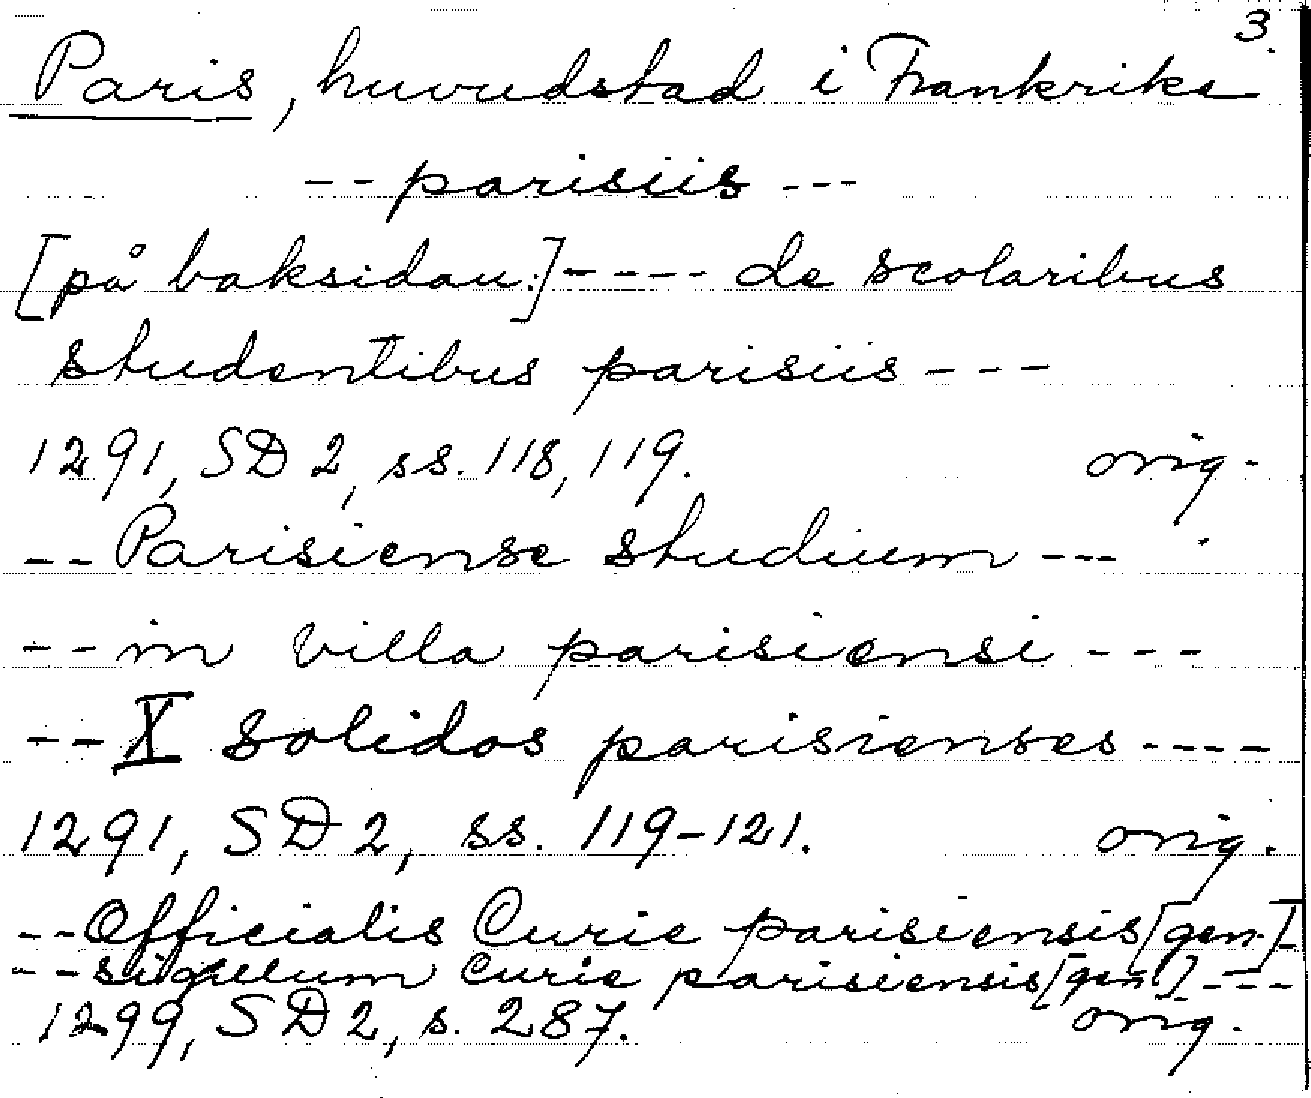 3.
Paris, huvudstad i Frankrike
-- parisiis ---
[på baksidan:] ---- de scolaribus
studentibus parisiis ---
1291, SD 2, ss. 118, 119. orig.
-- Parisiense studium ---
-- in villa parisiensi ---
-- X solidos parisienses ----
1291, SD 2, ss. 119-121. orig.
-- Officialis Curie parisiensis [gen.] -
-- sigillum curie parisiensis [gen.] ---
1299, SD 2, s. 287. orig.